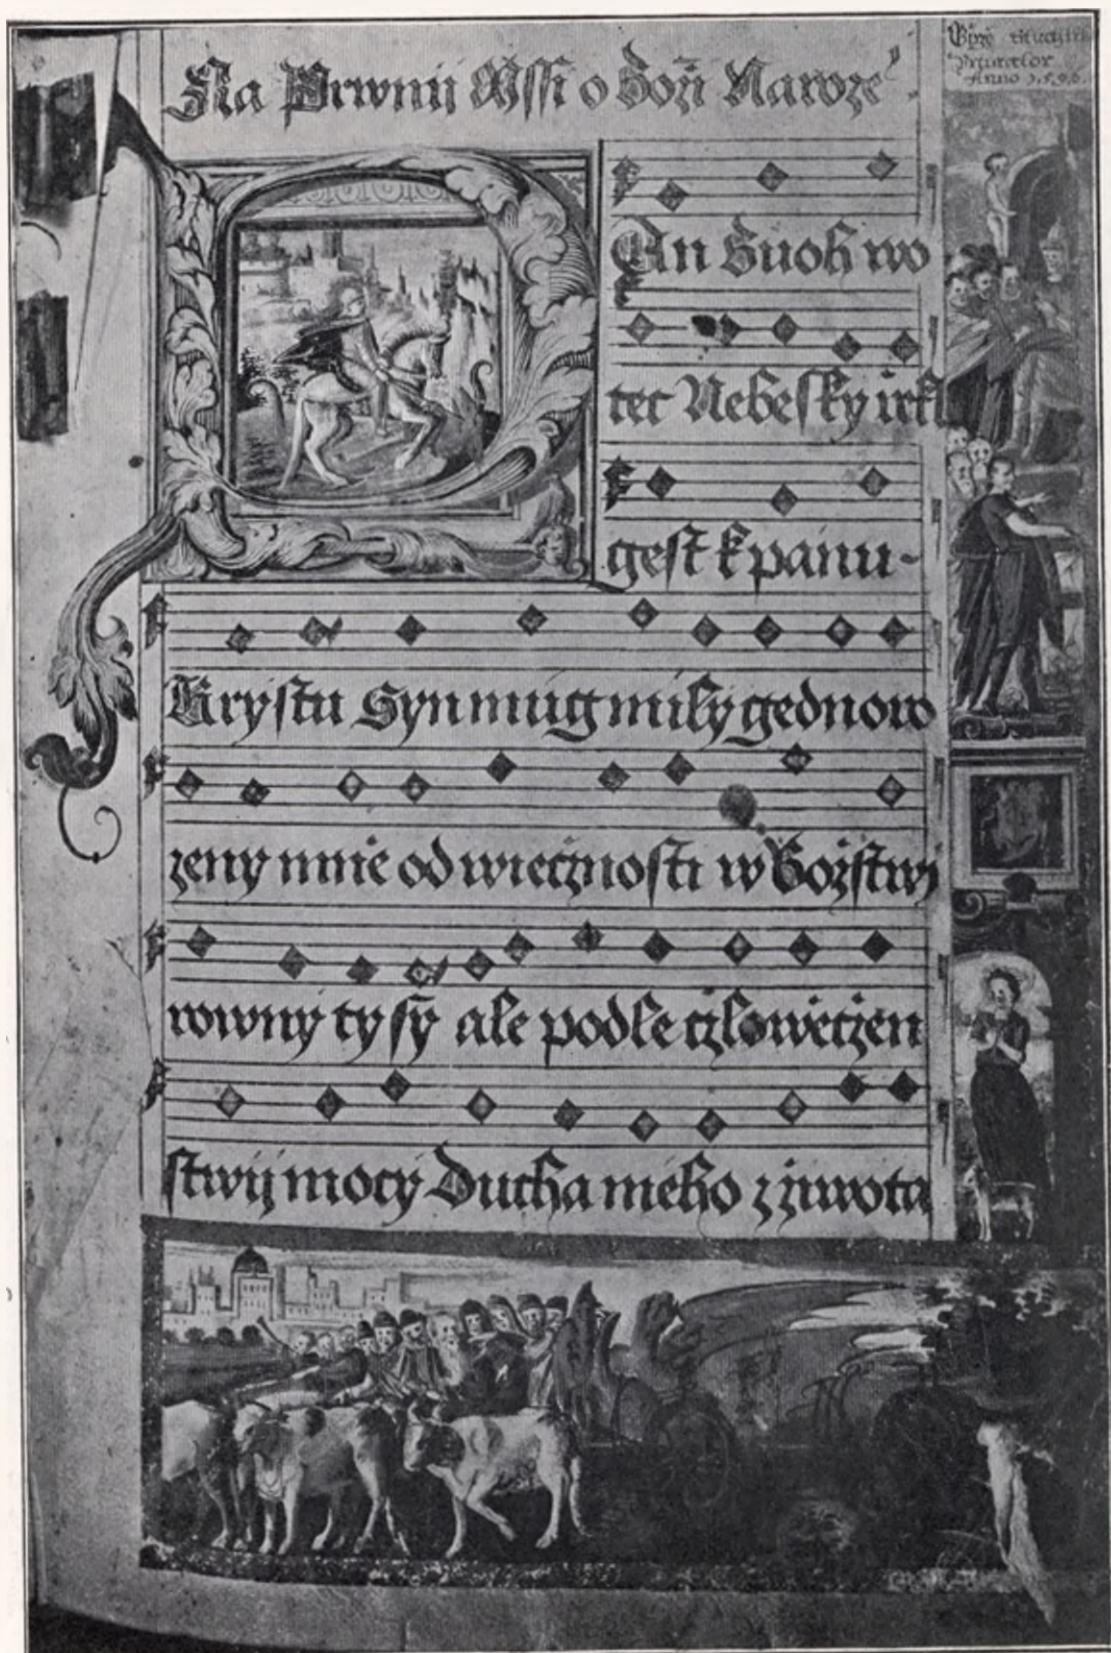 Na Prwnij Mssi o Božij Naroze
An Buoh wo
tec Nebesky irkl
gest k panu -
Krystu Syn mug mily gednoro
zeny mnie od wiecznosti w Bozstwij
rowny ty sy ale podle czloweczen
stwij mocy Ducha meho z ziwota
Anno 1.5.9.6.